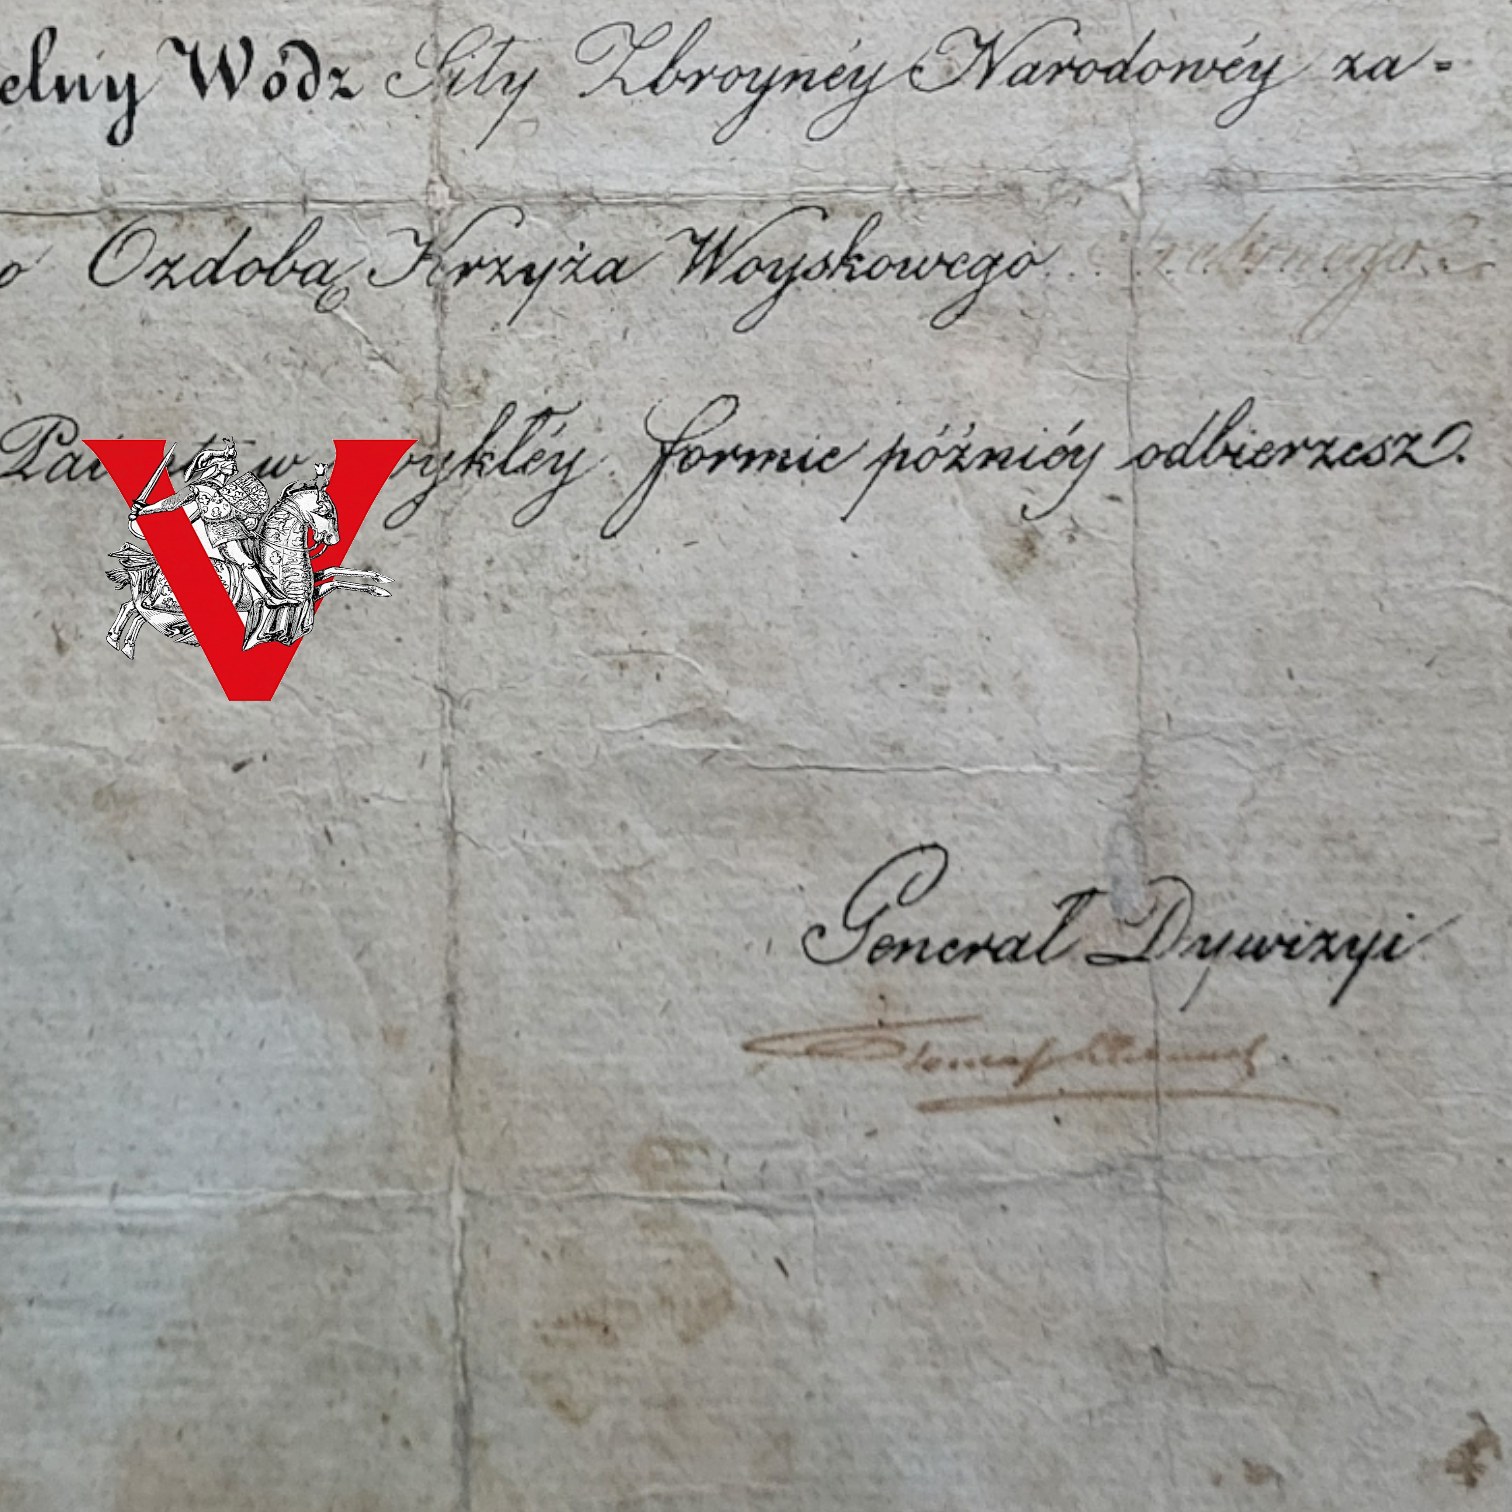 elny Wódz Siły Zbroynéy Narodowéy za-
o Ozdobą Krzyża Woyskowego
w formie późniéy odbierzesz.
Generał Dywizyi
V